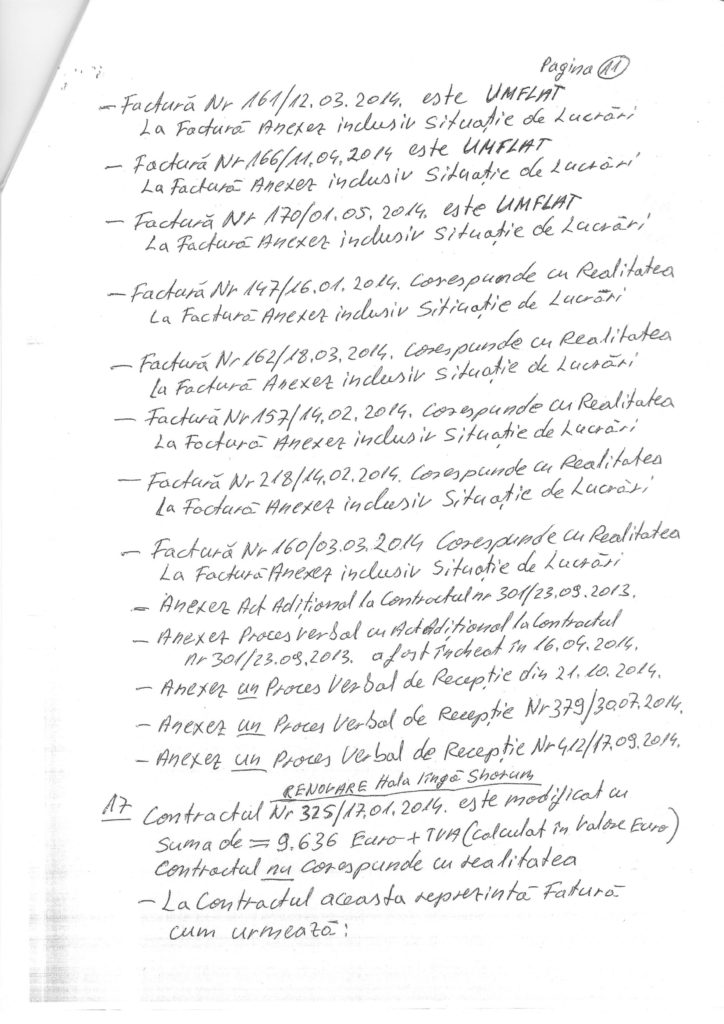 Pagina 11
- Factură Nr 161/12.03.2014. este UMFLAT
La Factură Anexez inclusiv Situație de Lucrări
- Factură Nr 166/11.04.2014 este UMFLAT
La Factură Anexez inclusiv Situație de Lucrări
- Factură Nr 170/01.05.2014. este UMFLAT
La Factură Anexez inclusiv Situație de Lucrări
- Factură Nr 147/16.01.2014. Corespunde cu Realitatea
La Factură Anexez inclusiv Sitiuație de Lucrări
- Factură Nr 162/18.03.2014. Corespunde cu Realitatea
la Factură Anexez inclusiv Situație de Lucrări
- Factură Nr 157/14.02.2014. Corespunde cu Realitatea
La Factură Anexez inclusiv Situație de Lucrări
- Factură Nr 218/14.02.2014. Corespunde cu Realitatea
La Factură Anexez inclusiv Situație de Lucrări
- Factură Nr 160/03.03.2014 Corespunde cu Realitatea
La Factură Anexez inclusiv Situație de Lucrări
- Anexez Act Adițional la Contractul nr 301/23.09.2013.
- Anexez Proces Verbal cu Act Adițional la Contractul
nr 301/23.09.2013. a fost încheat în 16.04.2014.
- Anexez un Proces Verbal de Recepție din 21.10.2014.
- Anexez un Proces Verbal de Recepție Nr 379/30.07.2014.
- Anexez un Proces Verbal de Recepție Nr 412/17.09.2014.
RENOVARE Hala lîngă Shorum
17 Contractul Nr 325/17.01.2014. este modificat cu
Suma de = 9.636 Euro + TVA (calculat în Valore Euro)
Contractul nu Corespunde cu realitatea
- La Contractul aceasta reprezintă Fatură
cum urmează: